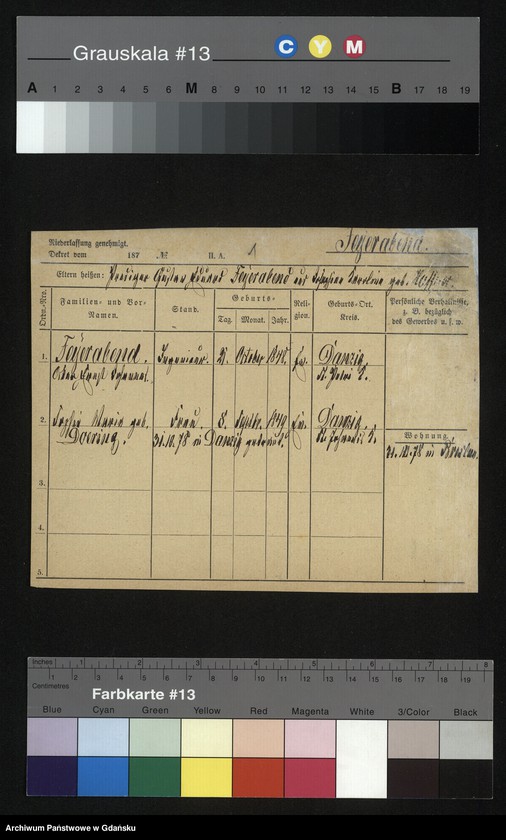 Grauskala #13
C Y M
A 1 2 3 4 5 6 M 8 9 10 11 12 13 14 15 B 17 18 19
Niederlassung genehmigt.
Dekret vom 187 II. A. 1
Feyerabend.
Eltern heißen: Prediger Gustav Eduard Feyerabend und Josephine Caroline geb.
Ordn.-Nro. Familien- und Vor-Namen. Stand. Geburts- Tag. Monat. Jahr. Religion. Geburts-Ort. Kreis. Persönliche Verhältnisse, z. B. bezüglich des Gewerbes u. s. w.
1. Feyerabend. Ingenieur. Oktober Ev. Danzig.
Oskar Ernst Johannes. St. Petri
2. Sophie Marie geb. Frau. 8. Septbr. 1849 Ev. Danzig.
Doering. 31.10.78 in Danzig getraut.
Wohnung.
31.10.78 in
3.
4.
5.
Inches 1 2 3 4 5 6 7 8
Centimetres 1 2 3 4 5 6 7 8 9 10 11 12 13 14 15 16 17 18 19
Farbkarte #13
Blue Cyan Green Yellow Red Magenta White 3/Color Black
Archiwum Państwowe w Gdańsku